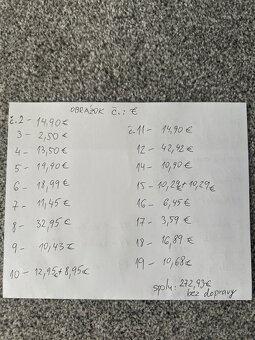 OBRÁZOK Č.: €
č.2 - 14,90€
3 - 2,50€
4 - 13,50€
5 - 19,90€
6 - 18,99€
7 - 11,45€
8 - 32,95€
9 - 10,43€
10 - 12,95€ + 8,95€
č.11 - 14,90€
12 - 42,42€
14 - 10,90€
15 - 10,29€ + 10,29€
16 - 6,45€
17 - 3,59€
18 - 16,89€
19 - 10,68€
spolu: 272,93€
bez dopravy